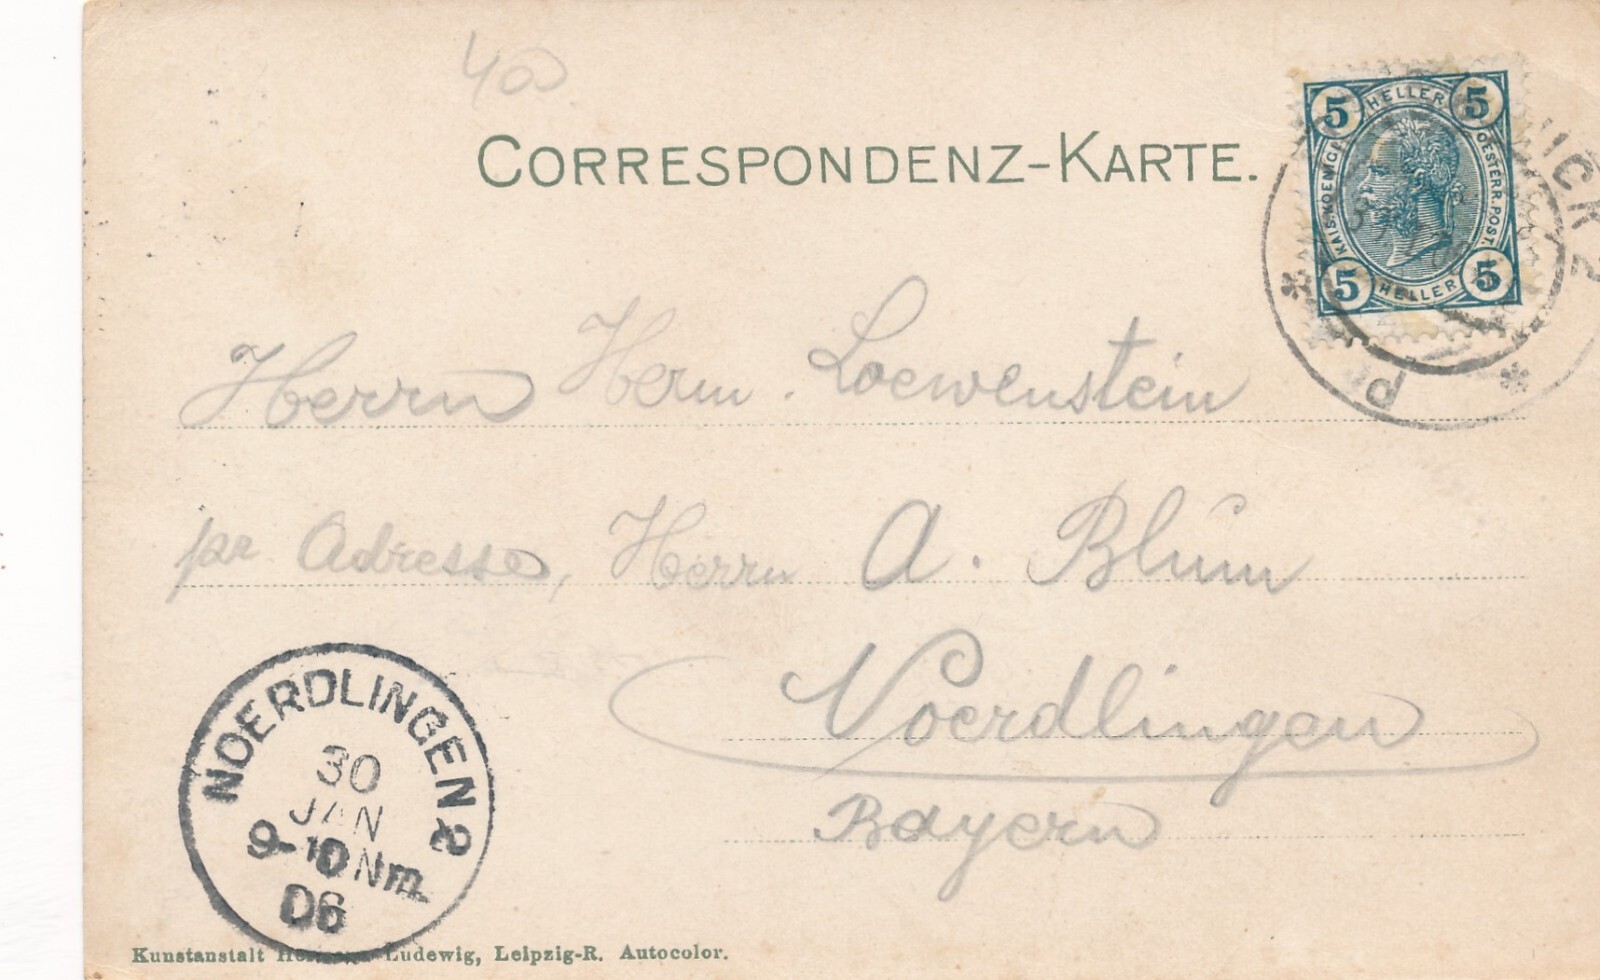 40.
CORRESPONDENZ-KARTE.
5 HELLER 5
KAIS. KOENIGL. OESTERR. POST.
5 HELLER 5
Herrn Herm. Loewenstein
pr Adresse, Herrn A. Blum
Noerdlingen
Bayern
NOERDLINGEN 2
30
JAN
9-10 Nm.
06
Kunstanstalt Ludewig, Leipzig-R. Autocolor.